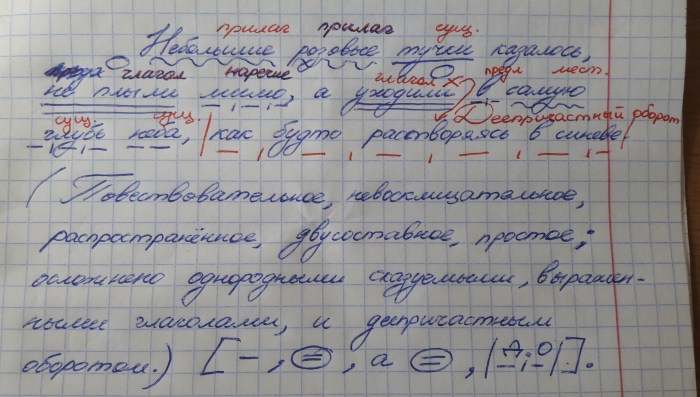 прилаг прилаг сущ.
Небольшие розовые тучки казалось,
глагол наречие глагол предл мест.
не плыли мимо, а уходили в самую
сущ. сущ. Деепричастный оборот
глубь неба, как будто растворяясь в синеве.
(Повествовательное, невосклицательное,
распространённое, двусоставное, простое;
осложнено однородными сказуемыми, выражен-
ными глаголами, и деепричастным
оборотом.) [–, (=), а (=), |Д.О|].